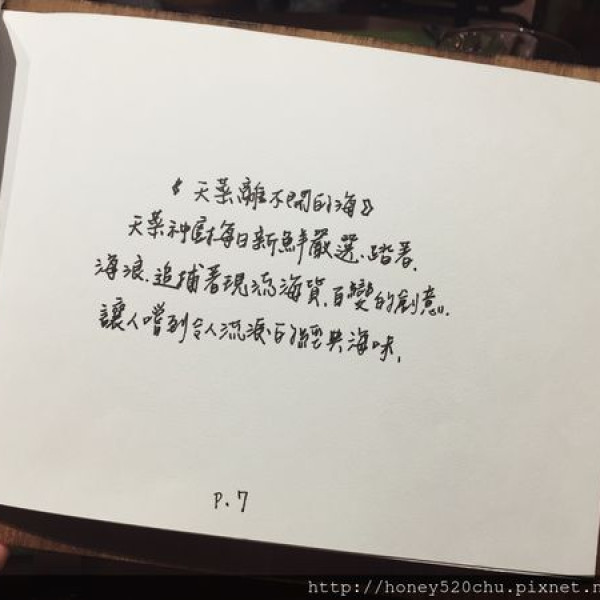 《天菜離不開的海》
天菜神廚每日新鮮嚴選、踏著、
海浪、追捕著現流海貨、百變的創意、
讓人嚐到令人流淚的經典海味、
P.7
http://honey520chu.pixnet.n